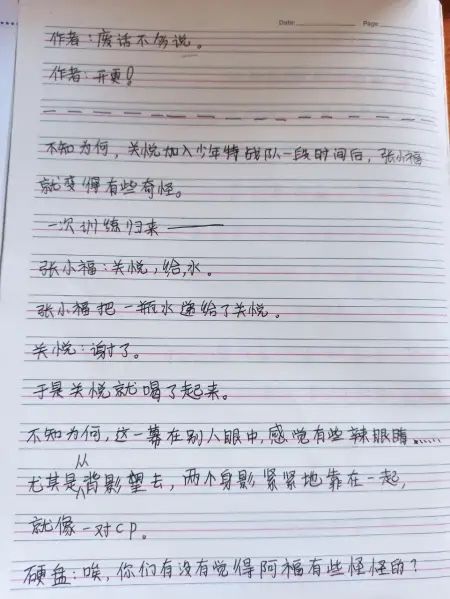 Date: Page
作者：废话不多说。
作者：开更！
不知为何，关悦加入少年特战队一段时间后，张小福
就变得有些奇怪。
一次训练归来——
张小福：关悦，给，水。
张小福把一瓶水递给了关悦。
关悦：谢了。
于是关悦就喝了起来。
不知为何，这一幕在别人眼中，感觉有些辣眼睛……
尤其是从背影望去，两个身影紧紧地靠在一起，
就像一对cp。
硬盘：唉，你们有没有觉得阿福有些怪怪的？